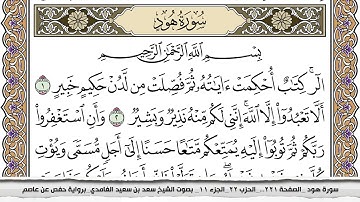 سُورَةُ هُودٍ
بِسْمِ اللَّهِ الرَّحْمَٰنِ الرَّحِيمِ
الٓر ۚ كِتَٰبٌ أُحْكِمَتْ ءَايَٰتُهُۥ ثُمَّ فُصِّلَتْ مِن لَّدُنْ حَكِيمٍ خَبِيرٍ ١
أَلَّا تَعْبُدُوٓا۟ إِلَّا ٱللَّهَ ۚ إِنَّنِى لَكُم مِّنْهُ نَذِيرٌ وَبَشِيرٌ ٢ وَأَنِ ٱسْتَغْفِرُوا۟
رَبَّكُمْ ثُمَّ تُوبُوٓا۟ إِلَيْهِ يُمَتِّعْكُم مَّتَٰعًا حَسَنًا إِلَىٰٓ أَجَلٍ مُّسَمًّى وَيُؤْتِ
سورة هود _ الصفحة ٢٢١ _ الحزب ٢٢ _ الجزء ١١ _ بصوت الشيخ سعد بن سعيد الغامدي _ برواية حفص عن عاصم